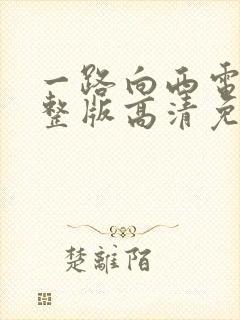 一路向西电
整版高清免
楚離陌